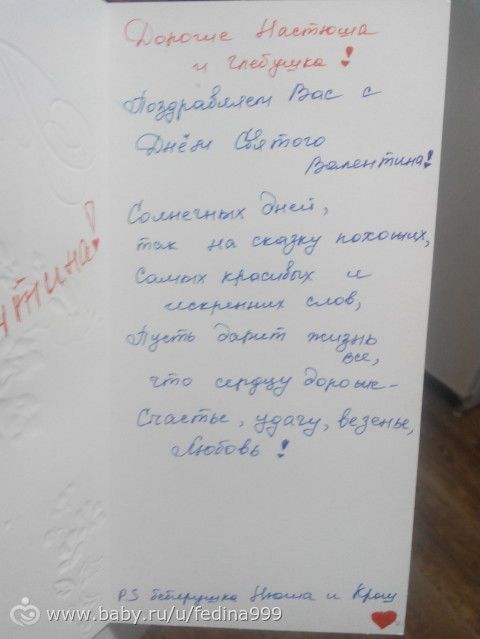 Дорогие Настюша
и Глебушка!
Поздравляем Вас с
Днём Святого
Валентина!
Солнечных дней,
так на сказку похожих,
Самых красивых и
искренних слов,
Пусть дарит жизнь
все,
что сердцу дороже -
Счастье, удачу, везенье,
Любовь!
PS Нюша и Крош
www.baby.ru/u/fedina999